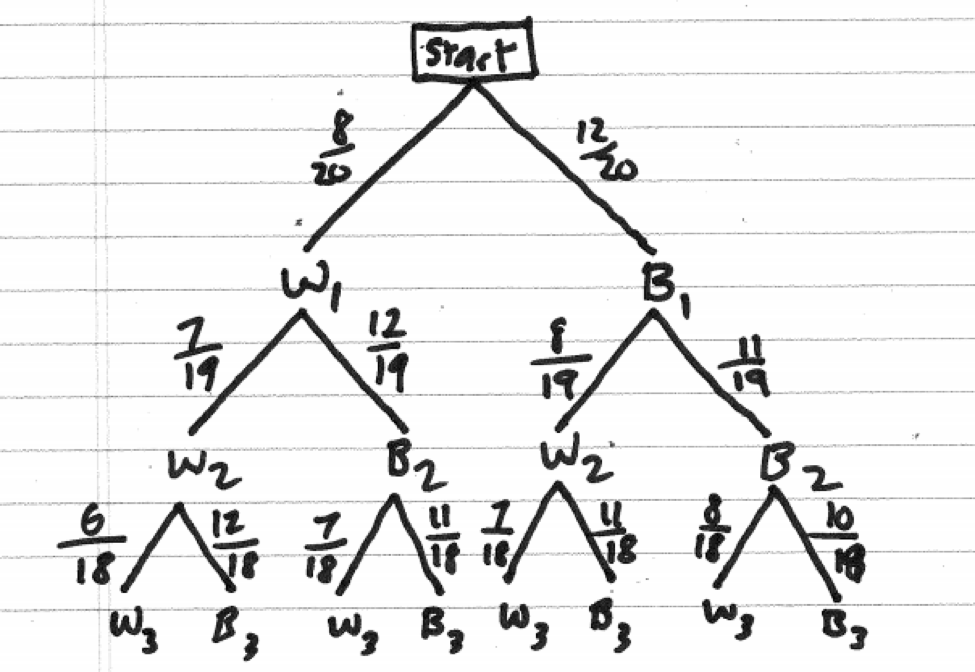 Start
8/20 12/20
W₁ B₁
7/19 12/19 8/19 11/19
W₂ B₂ W₂ B₂
6/18 12/18 7/18 11/18 7/18 11/18 8/18 10/18
W₃ B₃ W₃ B₃ W₃ B₃ W₃ B₃